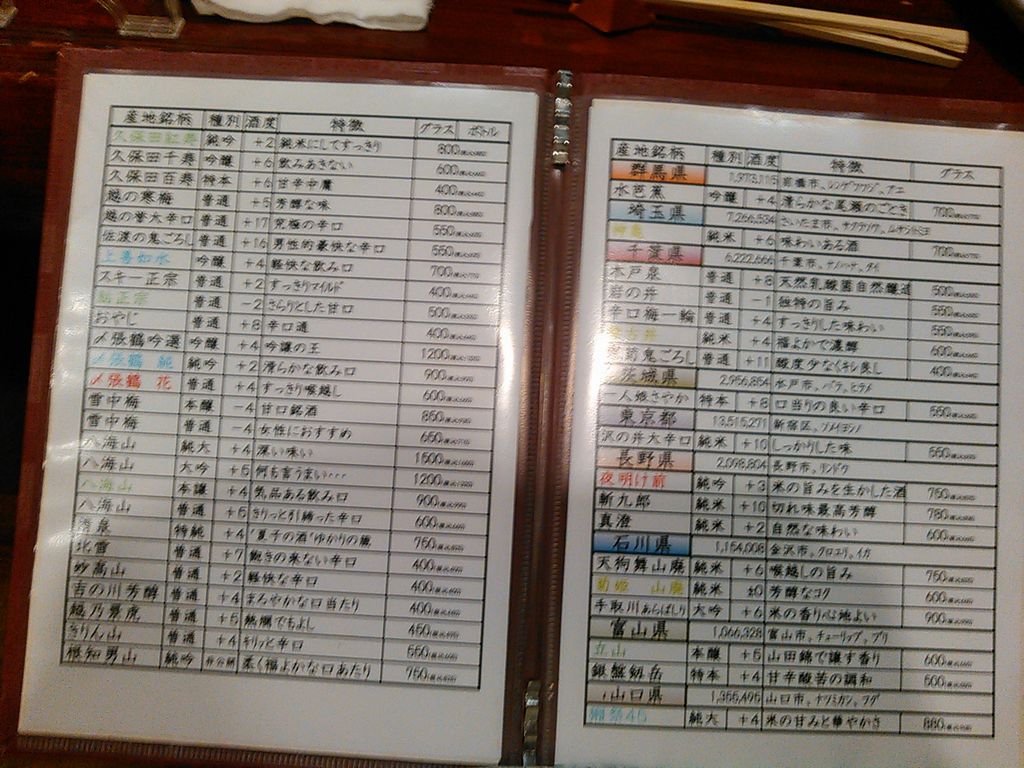 産地銘柄 種別 酒度 特徴 グラス ボトル
久保田紅寿 純吟 +2 純米にしてすっきり 800
久保田千寿 吟醸 +6 飲みあきない 600
久保田百寿 特本 +6 甘辛中庸 400
越の寒梅 普通 +5 芳醇な味 800
越の誉大辛口 普通 +17 究極の辛口 550
佐渡の鬼ごろし 普通 +16 男性的豪快な辛口 550
上善如水 吟醸 +4 軽快な飲み口 700
スキー正宗 普通 +2 すっきりマイルド 400
正宗 普通 -2 さらりとした甘口 500
おやじ 普通 +8 辛口通 400
〆張鶴吟選 吟醸 +4 吟醸の王 1200
〆張鶴 純 純吟 +2 清らかな飲み口 900
〆張鶴 花 普通 +4 すっきり喉越し 600
雪中梅 本醸 -4 甘口銘酒 850
雪中梅 普通 -4 女性におすすめ 650
八海山 純大 +4 深い味い 1500
八海山 大吟 +5 何も言うまい・・・ 1200
八海山 本醸 +4 気品ある飲み口 900
八海山 普通 +5 きりっと引締った辛口 600
清泉 特純 +4 "夏子の酒"ゆかりの蔵 750
北雪 普通 +7 飽きの来ない辛口 400
妙高山 普通 +2 軽快な辛口 400
吉の川芳醇 普通 +4 まろやかな口当たり 400
越乃景虎 普通 +5 熱燗でもよし 450
きりん山 普通 +4 キリッと辛口 550
根知男山 純吟 非公開 柔く福よかな口あたり 750
産地銘柄 種別 酒度 特徴 グラス
群馬県 1,973,115 前橋市、レンゲツツジ、アユ
水芭蕉 吟醸 +4 清らかな尾瀬のごとき 700
埼玉県 7,266,534 さいたま市、サクラソウ、ムサシトミヨ
神亀 純米 +6 味わいある酒 700
千葉県 6,222,666 千葉市、ナノハナ、タイ
木戸泉 普通 +8 天然乳酸菌自然醸造 500
岩の井 普通 -1 独特の旨み 550
辛口梅一輪 普通 +4 すっきりした味わい 550
純米 +4 福よかで濃醇 600
鬼ごろし 普通 +11 酸度少なくキレ良し 400
茨城県 2,956,854 水戸市、バラ、ヒラメ
一人娘さやか 特本 +8 口当りの良い辛口 550
東京都 13,515,271 新宿区、ソメイヨシノ
沢の井大辛口 純米 +10 しっかりした味 550
長野県 2,098,804 長野市、リンドウ
夜明け前 純吟 +3 米の旨みを生かした酒 750
斬九郎 純米 +10 切れ味最高芳醇 750
真澄 純米 +2 自然な味わい 600
石川県 1,154,008 金沢市、クロユリ、イカ
天狗舞 山廃 純米 +6 喉越しの旨み 750
菊姫 山廃 純米 ±0 芳醇なコク 600
手取川あらばしり 大吟 +6 米の香り心地よい 900
富山県 1,066,328 富山市、チューリップ、ブリ
立山 本醸 +5 山田錦で醸す香り 600
銀盤剱岳 特本 +4 甘辛酸苦の調和 500
山口県 1,355,495 山口市、ナツミカン、フグ
獺祭45 純大 +4 米の甘みと華やかさ 880